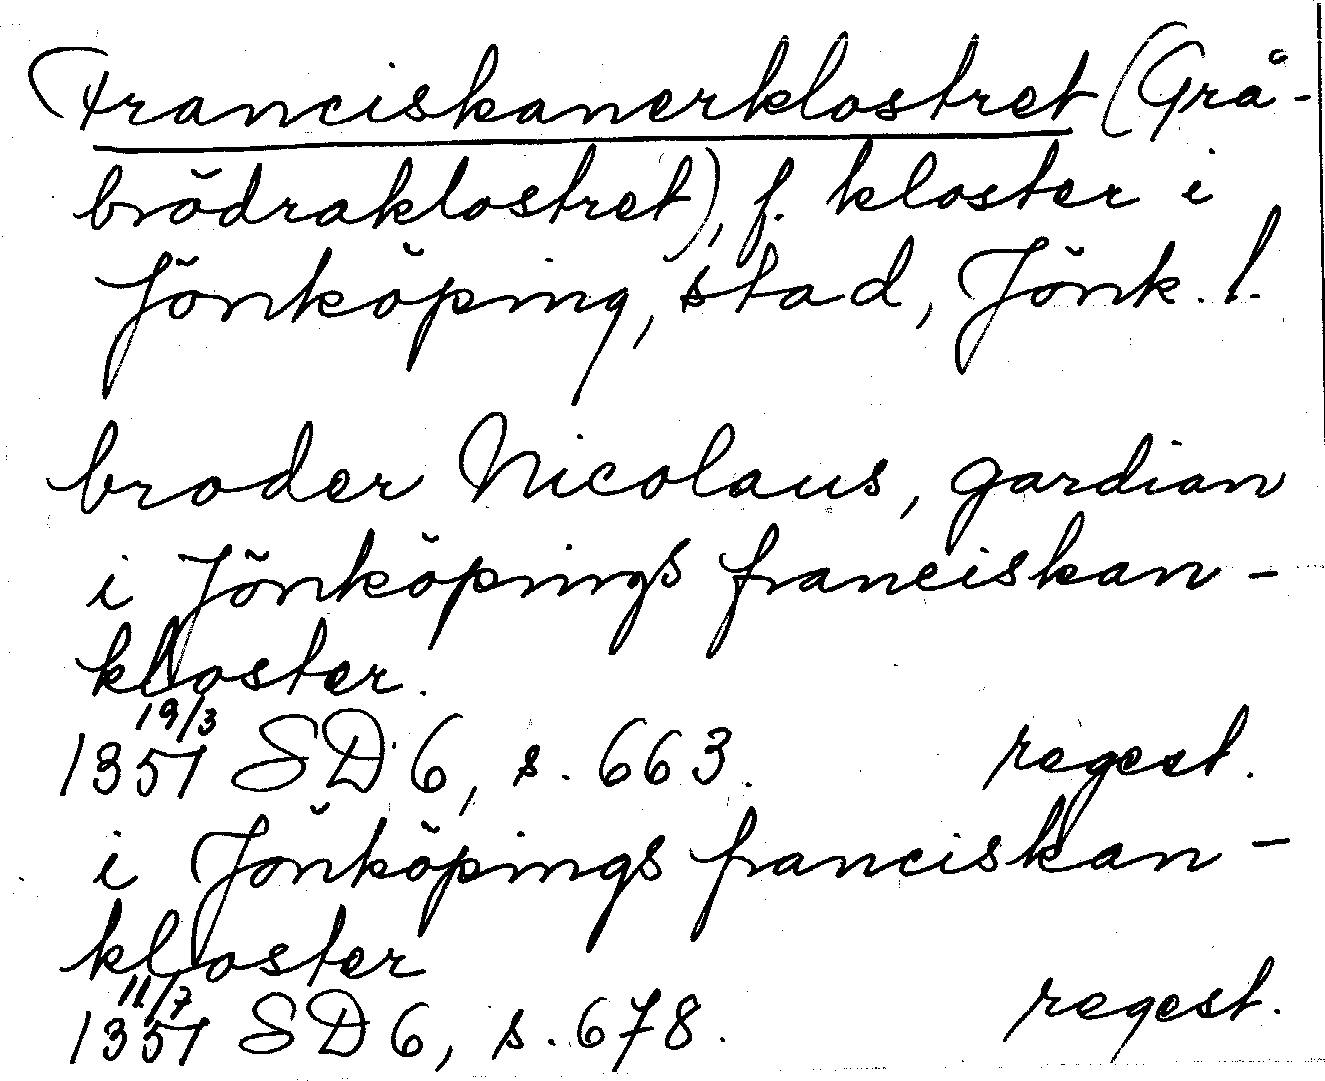 Franciskanerklostret (Grå-
brödraklostret), f. kloster i
Jönköping, stad, Jönk. l.
broder Nicolaus, gardian
i Jönköpings franciskan-
kloster.
19/3
1357 SD 6, s. 663. regest.
i Jönköpings franciskan-
kloster
11/7
1357 SD 6, s. 678. regest.